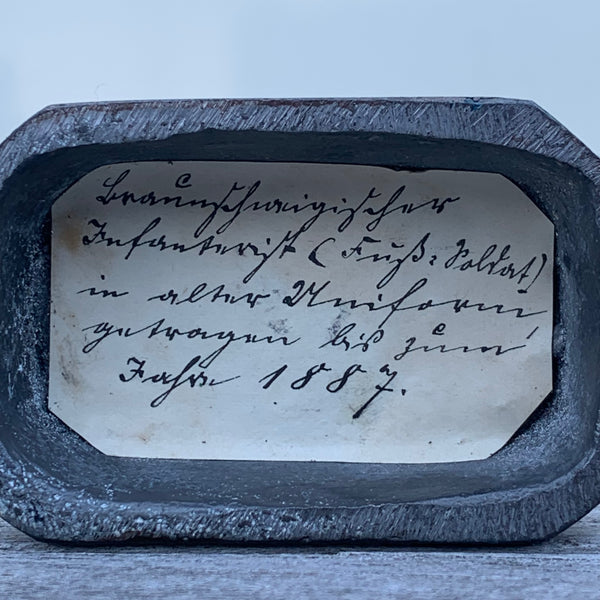 Braunschweigischer
Infanterist (Fuß-Soldat)
in alter Uniform
getragen bis zum
Jahre 1887.